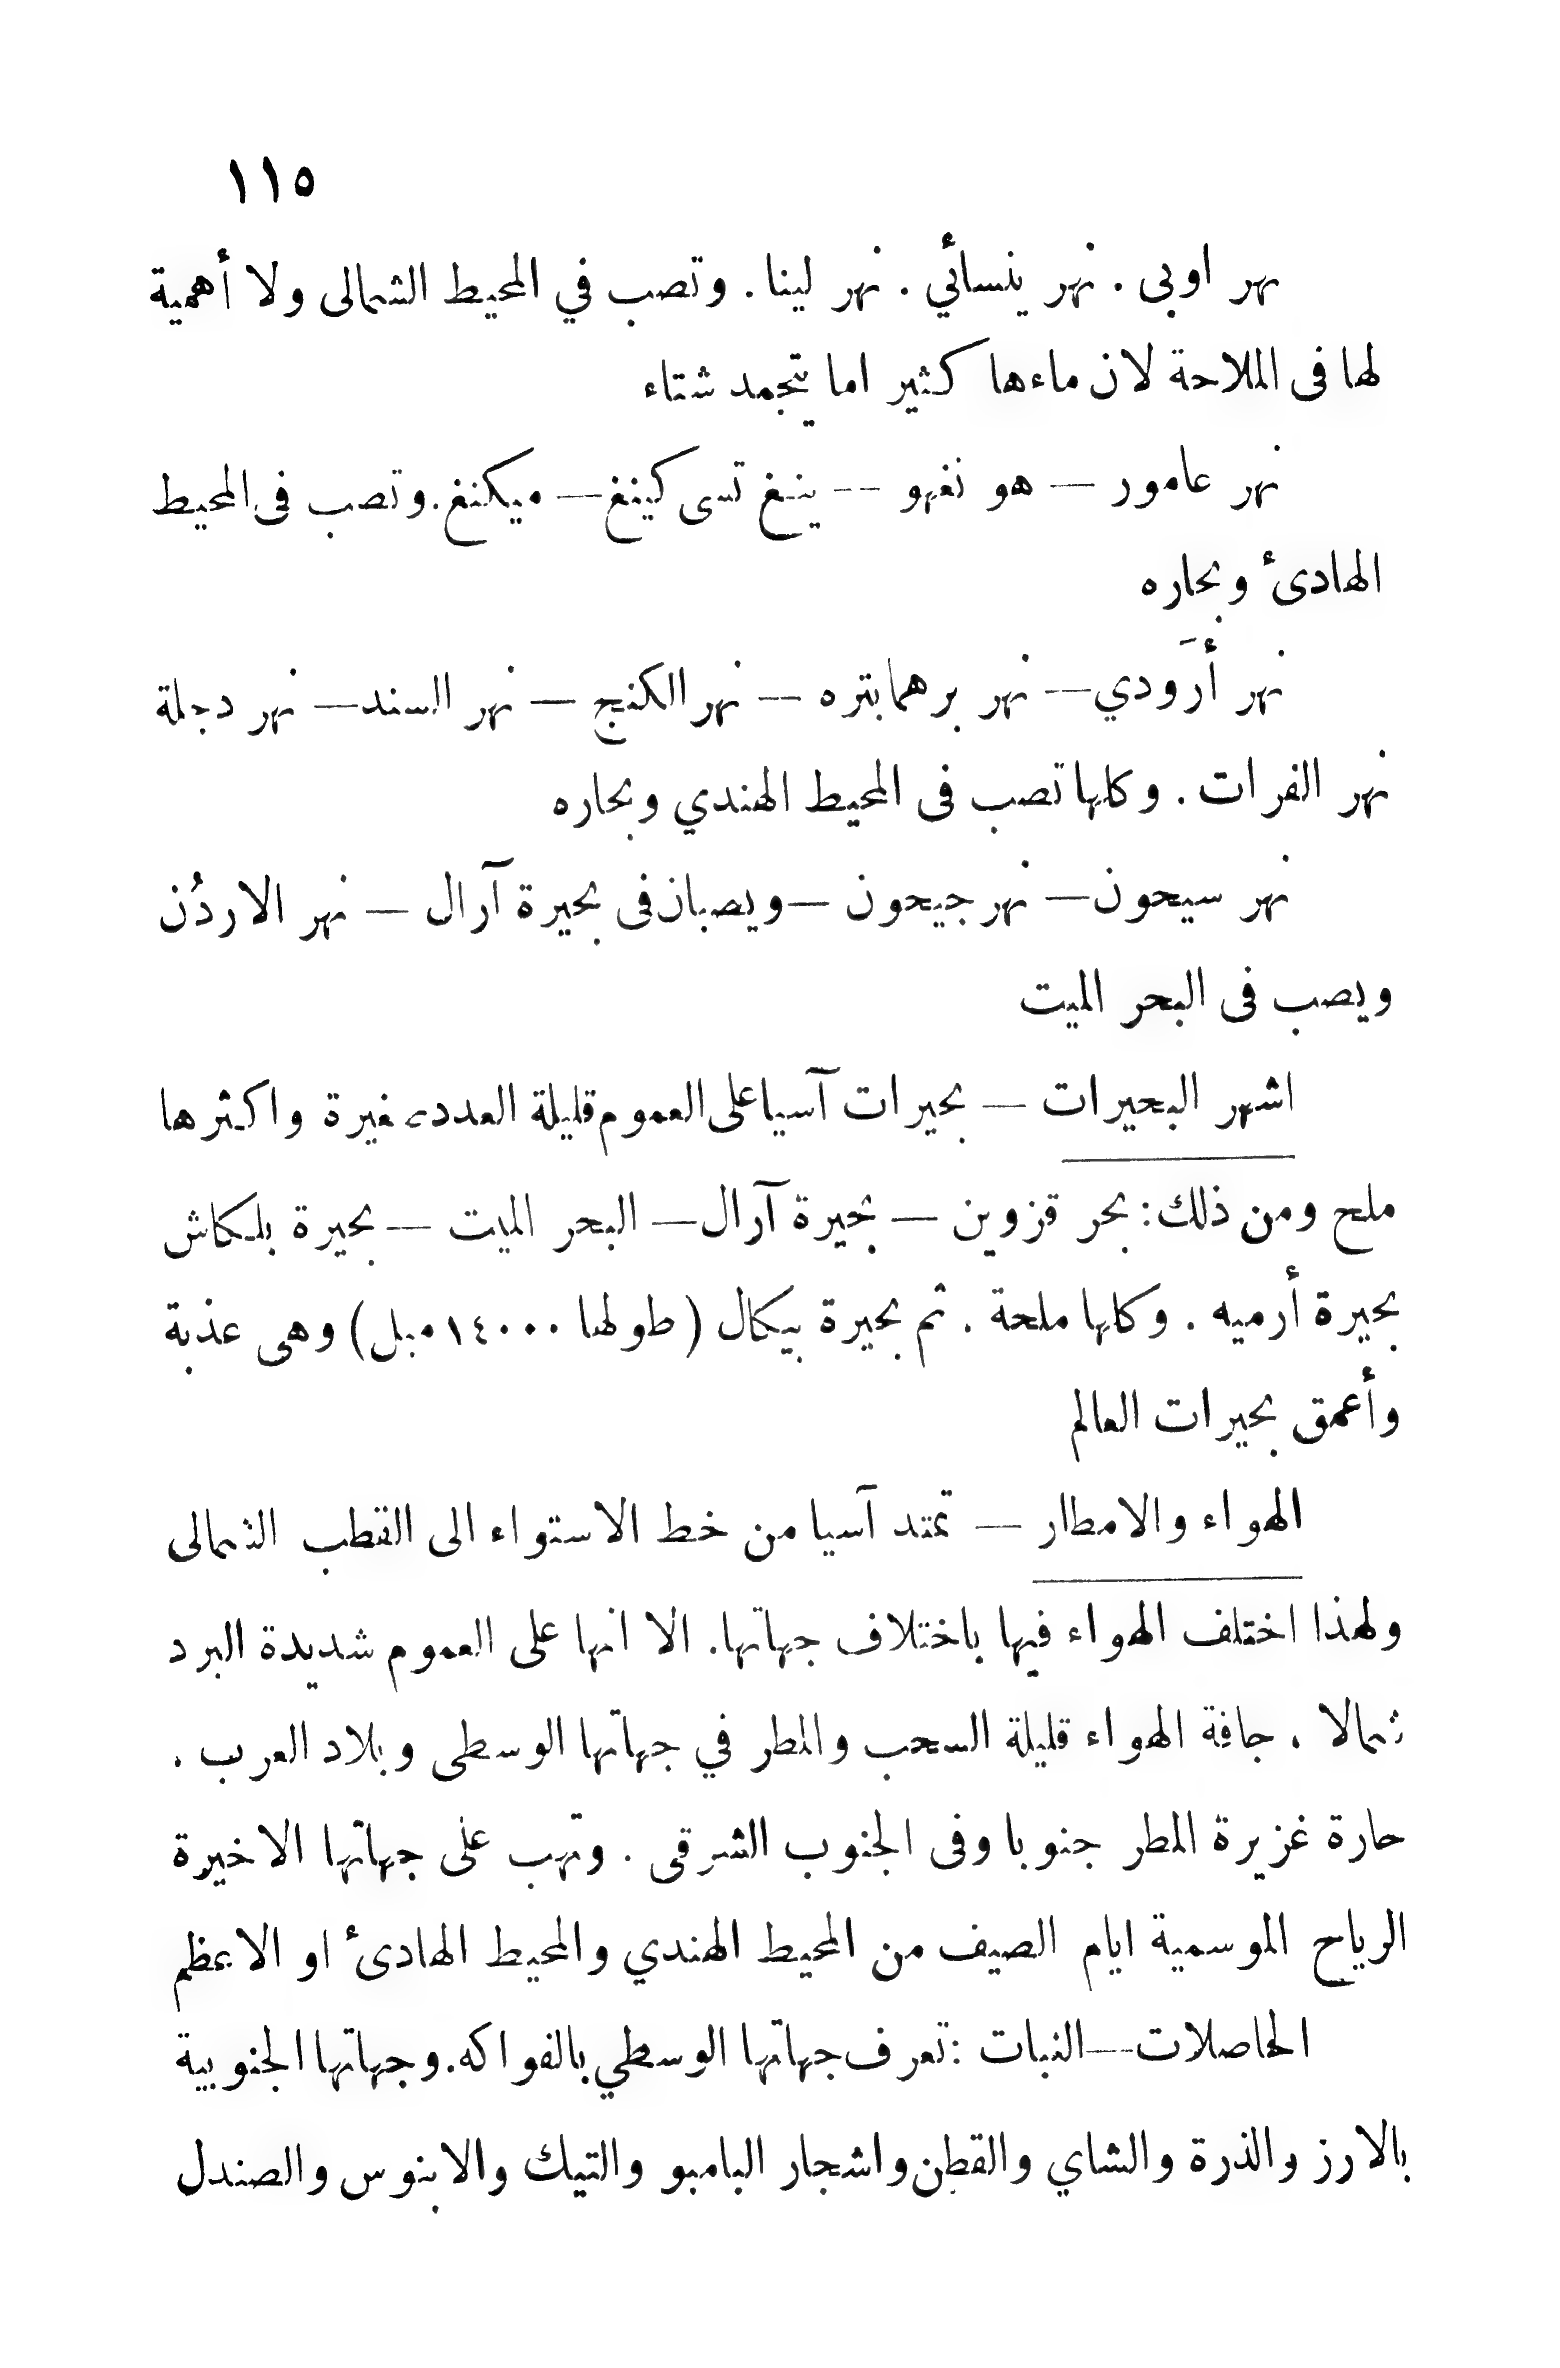 ١١٥
نهر اوبى . نهر ينسائي . نهر لينا . وتصب في المحيط الشمالى ولا أهمية
لها فى الملاحة لان ماءها كثير اما يتجمد شتاء
نهر عامور — هو نغهو -- ينغ تسى كينغ — ميكنغ. وتصب فى المحيط
الهادئ وبحاره
نهر أرَودي — نهر برهمابتره — نهر الكنج — نهر السند — نهر دجلة
نهر الفرات . وكلها تصب فى المحيط الهندي وبحاره
نهر سيحون — نهر جيحون — ويصبان فى بحيرة آرال — نهر الاردُن
ويصب فى البحر الميت
اشهر البحيرات — بحيرات آسيا على العموم قليلة العدد صغيرة واكثرها
ملح ومن ذلك : بحر قزوين — بحيرة آرال — البحر الميت — بحيرة بلكاش
بحيرة أرميه . وكلها ملحة . ثم بحيرة بيكال ( طولها ١٤٠٠٠ ميل ) وهى عذبة
وأعمق بحيرات العالم
الهواء والامطار — تمتد آسيا من خط الاستواء الى القطب الشمالى
ولهذا اختلف الهواء فيها باختلاف جهاتها . الا انها على العموم شديدة البرد
شمالا . جافة الهواء قليلة السحب والمطر في جهاتها الوسطى وبلاد العرب .
حارة غزيرة المطر جنوبا وفى الجنوب الشرقى . وتهب على جهاتها الاخيرة
الرياح الموسمية ايام الصيف من المحيط الهندي والمحيط الهادئ او الاعظم
الحاصلات — النبات : تعرف جهاتها الوسطي بالفواكه. وجهاتها الجنوبية
بالارز والذرة والشاي والقطن واشجار البامبو والتيك والابنوس والصندل